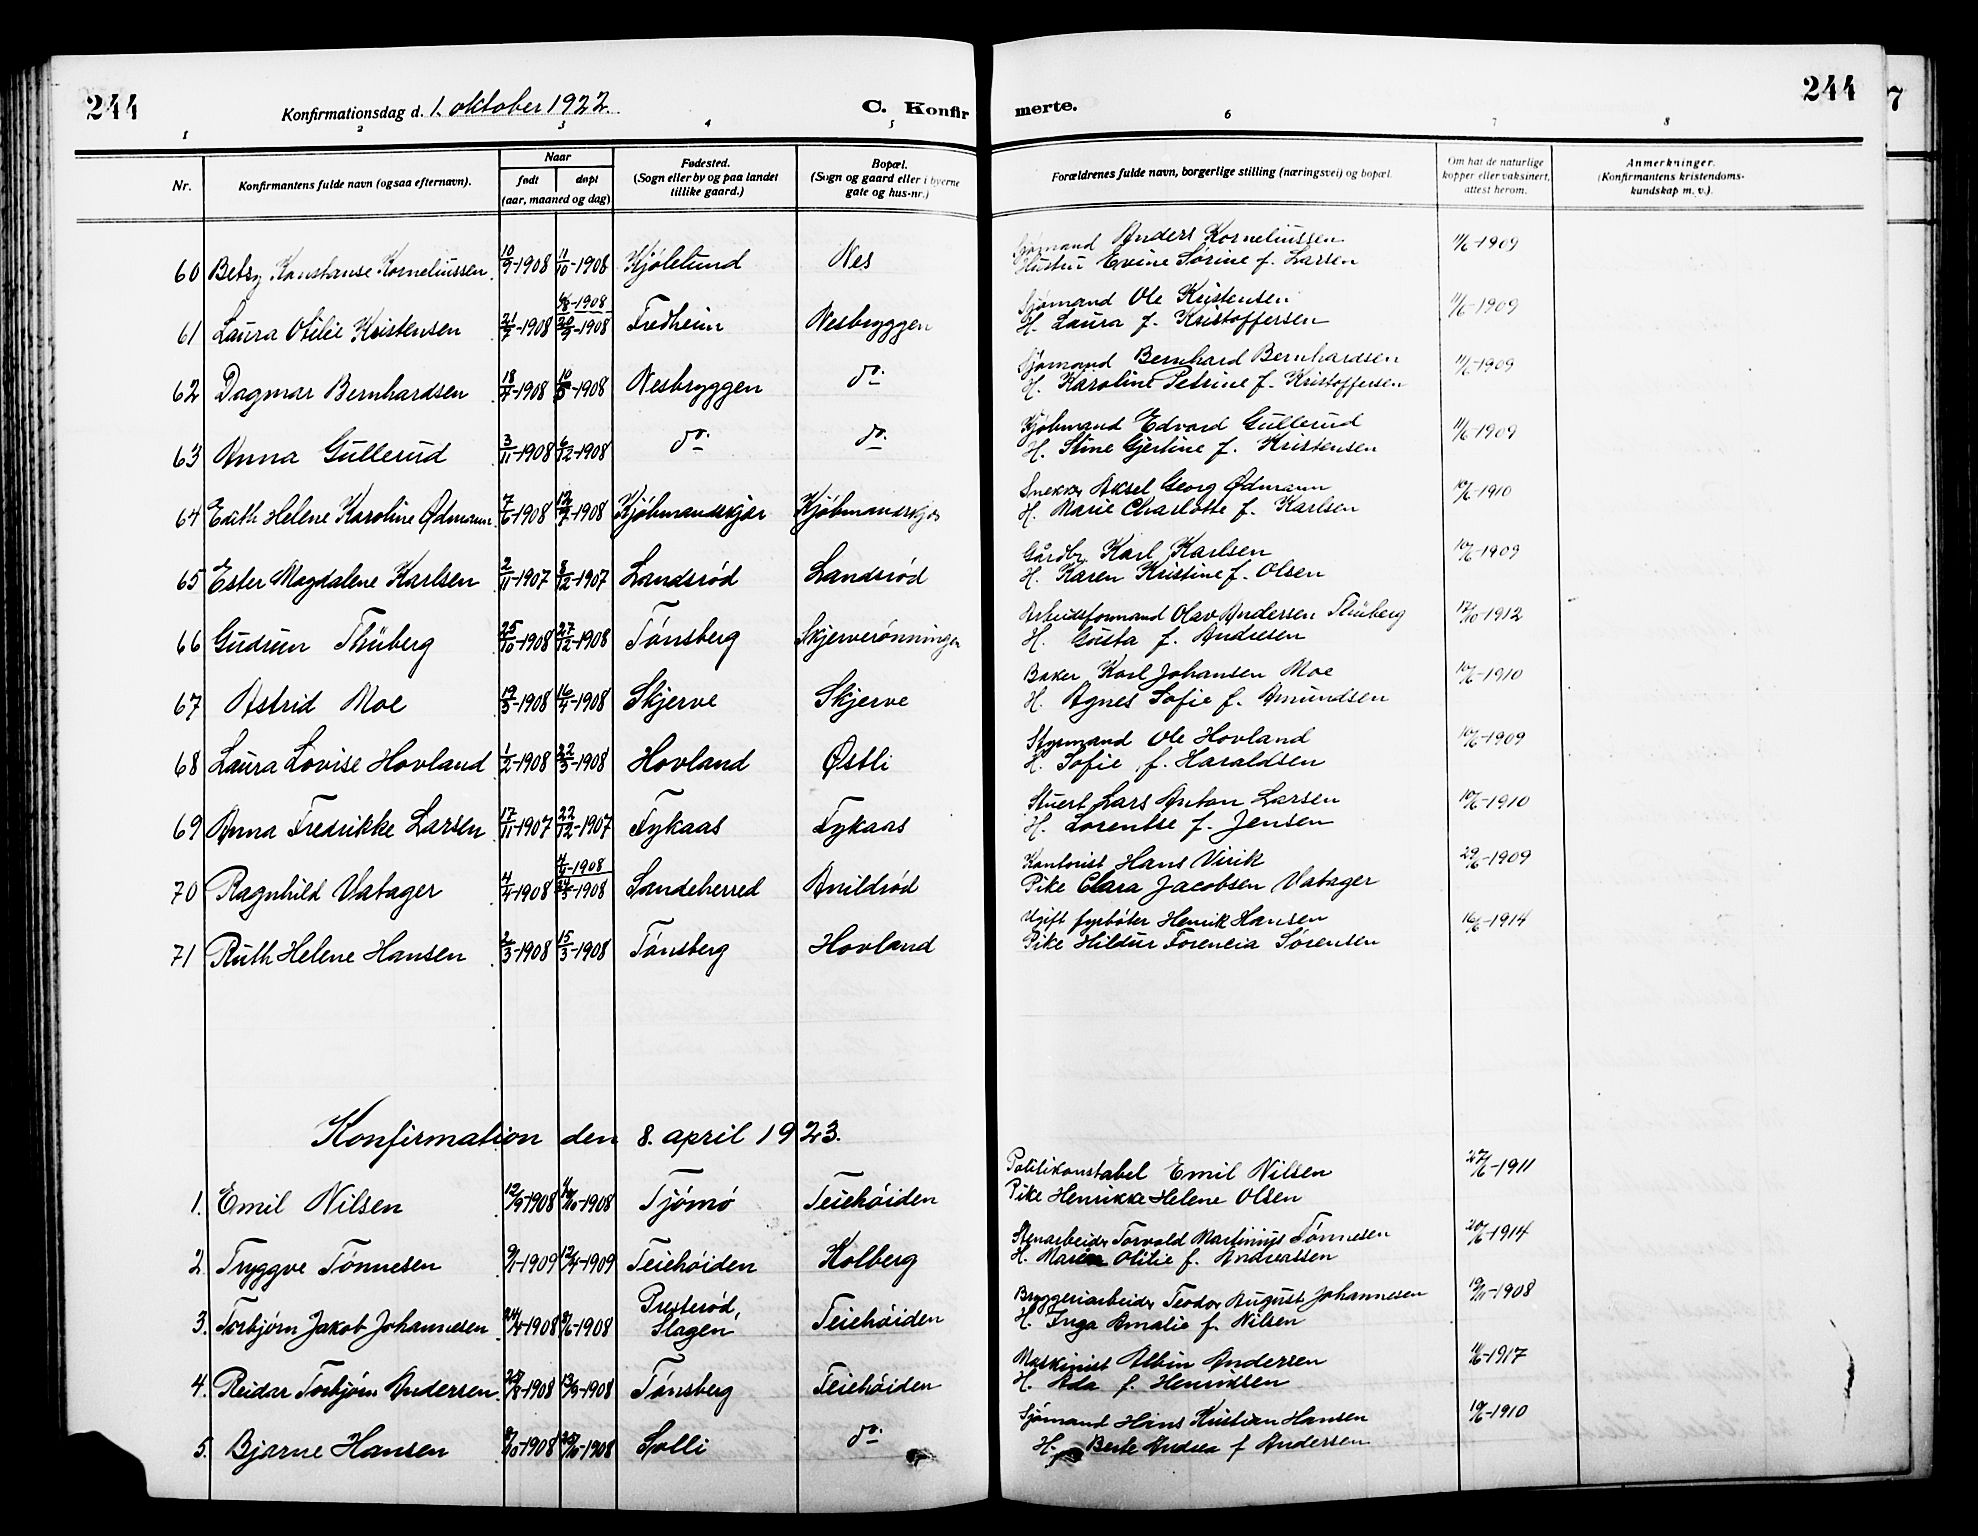 244 Konfirmationsdag d. 1. oktober 1922. C. Konfir merte. 244
1 2 3 4 5 6 7 8
Nr. Konfirmantens fulde navn (ogsaa efternavn). Naar født døpt (aar, maaned og dag) Fødested. (Sogn eller by og paa landet tillike gaard.) Bopæl. (Sogn og gaard eller i byerne gate og hus-nr.) Forældrenes fulde navn, borgerlige stilling (næringsvei) og bopæl. Om hat de naturlige kopper eller vaksinert, attest herom. Anmerkninger. (Konfirmantens kristendoms-kundskap m. v.).
60 Betsy Konstanse Korneliussen. 10/9-1908 11/10-1908 Kjølelund Nes Sjømand Anders Korneliussen 11/6-1909
Hustru Evine Sørine f. Larsen
61 Laura Otilie Kristensen 21/7-1908 6/8-1908 20/9-1908 Fredheim Nesbryggen Sjømand Ole Kristensen 11/6-1909
H. Laura f. Kristoffersen
62 Dagmar Bernhardsen 18/4-1908 10/5-1908 Nesbryggen do. Sjømand Bernhard Bernhardsen 11/6-1909
H. Karoline Petrine f. Kristoffersen
63 Anna Gullerud 3/11-1908 6/12-1908 do. do. Kjøbmand Edvard Gullerud 11/6-1909
H. Stine Gjertine f. Kristensen
64 Edith Helene Karoline Ødmann 7/6-1908 12/7-1908 Kjøbmandskjær Kjøbmandskjær Snekker Aksel Georg Ødmann 10/6-1910
H. Marie Charlotte f. Karlsen
65 Ester Magdalene Karlsen 2/11-1907 8/12-1907 Landsrød Landsrød Gårdbr. Karl Karlsen 10/6-1909
H. Karen Kristine f. Olsen
66 Gudrun Thüberg 25/10-1908 27/12-1908 Tønsberg Skjerverønningen Arbeidsformand Olav Andersen Thüberg 17/10-1912
H. Gusta f. Andresen
67 Astrid Moe 19/3-1908 16/4-1908 Skjerve Skjerve Baker Karl Johansen Moe 10/6-1910
H. Agnes Sofie f. Amundsen
68 Laura Lovise Hovland 1/2-1908 22/3-1908 Hovland Østli Styrmand Ole Hovland 10/6-1909
H. Sofie f. Haraldsen
69 Anna Fredrikke Larsen 17/11-1907 22/12-1907 Fykaas Fykaas Stuert Lars Anton Larsen 10/6-1910
H. Lorentse f. Jensen
70 Ragnhild Vatager 4/4-1908 7/4-1908 24/5-1908 Sandeherred Anildrød Kontorist Hans Virik 29/6-1909
Pike Clara Jacobsen Vatager
71 Ruth Helene Hansen 2/3-1908 15/3-1908 Tønsberg Hovland Ugift fyrbøter Henrik Hansen 16/6-1914
Pike Hildur Forencia Sørensen
Konfirmation den 8. april 1923.
1. Emil Nilsen 12/9-1908 4/10-1908 Tjømø Teiehøiden Politikonstabel Emil Nilsen 27/6-1911
Pike Henrikke Helene Olsen
2. Tryggve Tønnesen 9/1-1909 12/4-1909 Teiehøiden Kolberg Stenarbeider Torvald Martinius Tønnesen 20/6-1914
H. Maren Otilie f. Andreassen
3. Torbjørn Jakob Johannesen 24/4-1908 8/6-1908 Presterød, Slagen Teiehøiden Bryggeriarbeider Teodor August Johannesen 19/11-1908
H. Inga Amalie f. Nilsen
4. Reidar Torbjørn Andersen. 22/8-1908 13/9-1908 Tønsberg Teiehøiden Maskinist Albin Andersen 11/6-1917
H. Ada f. Henriksen
5. Bjarne Hansen 8/10-1908 25/10-1908 Solli do. Sjømand Hans Kristian Hansen 10/6-1910
H. Berte Andrea f Andersen